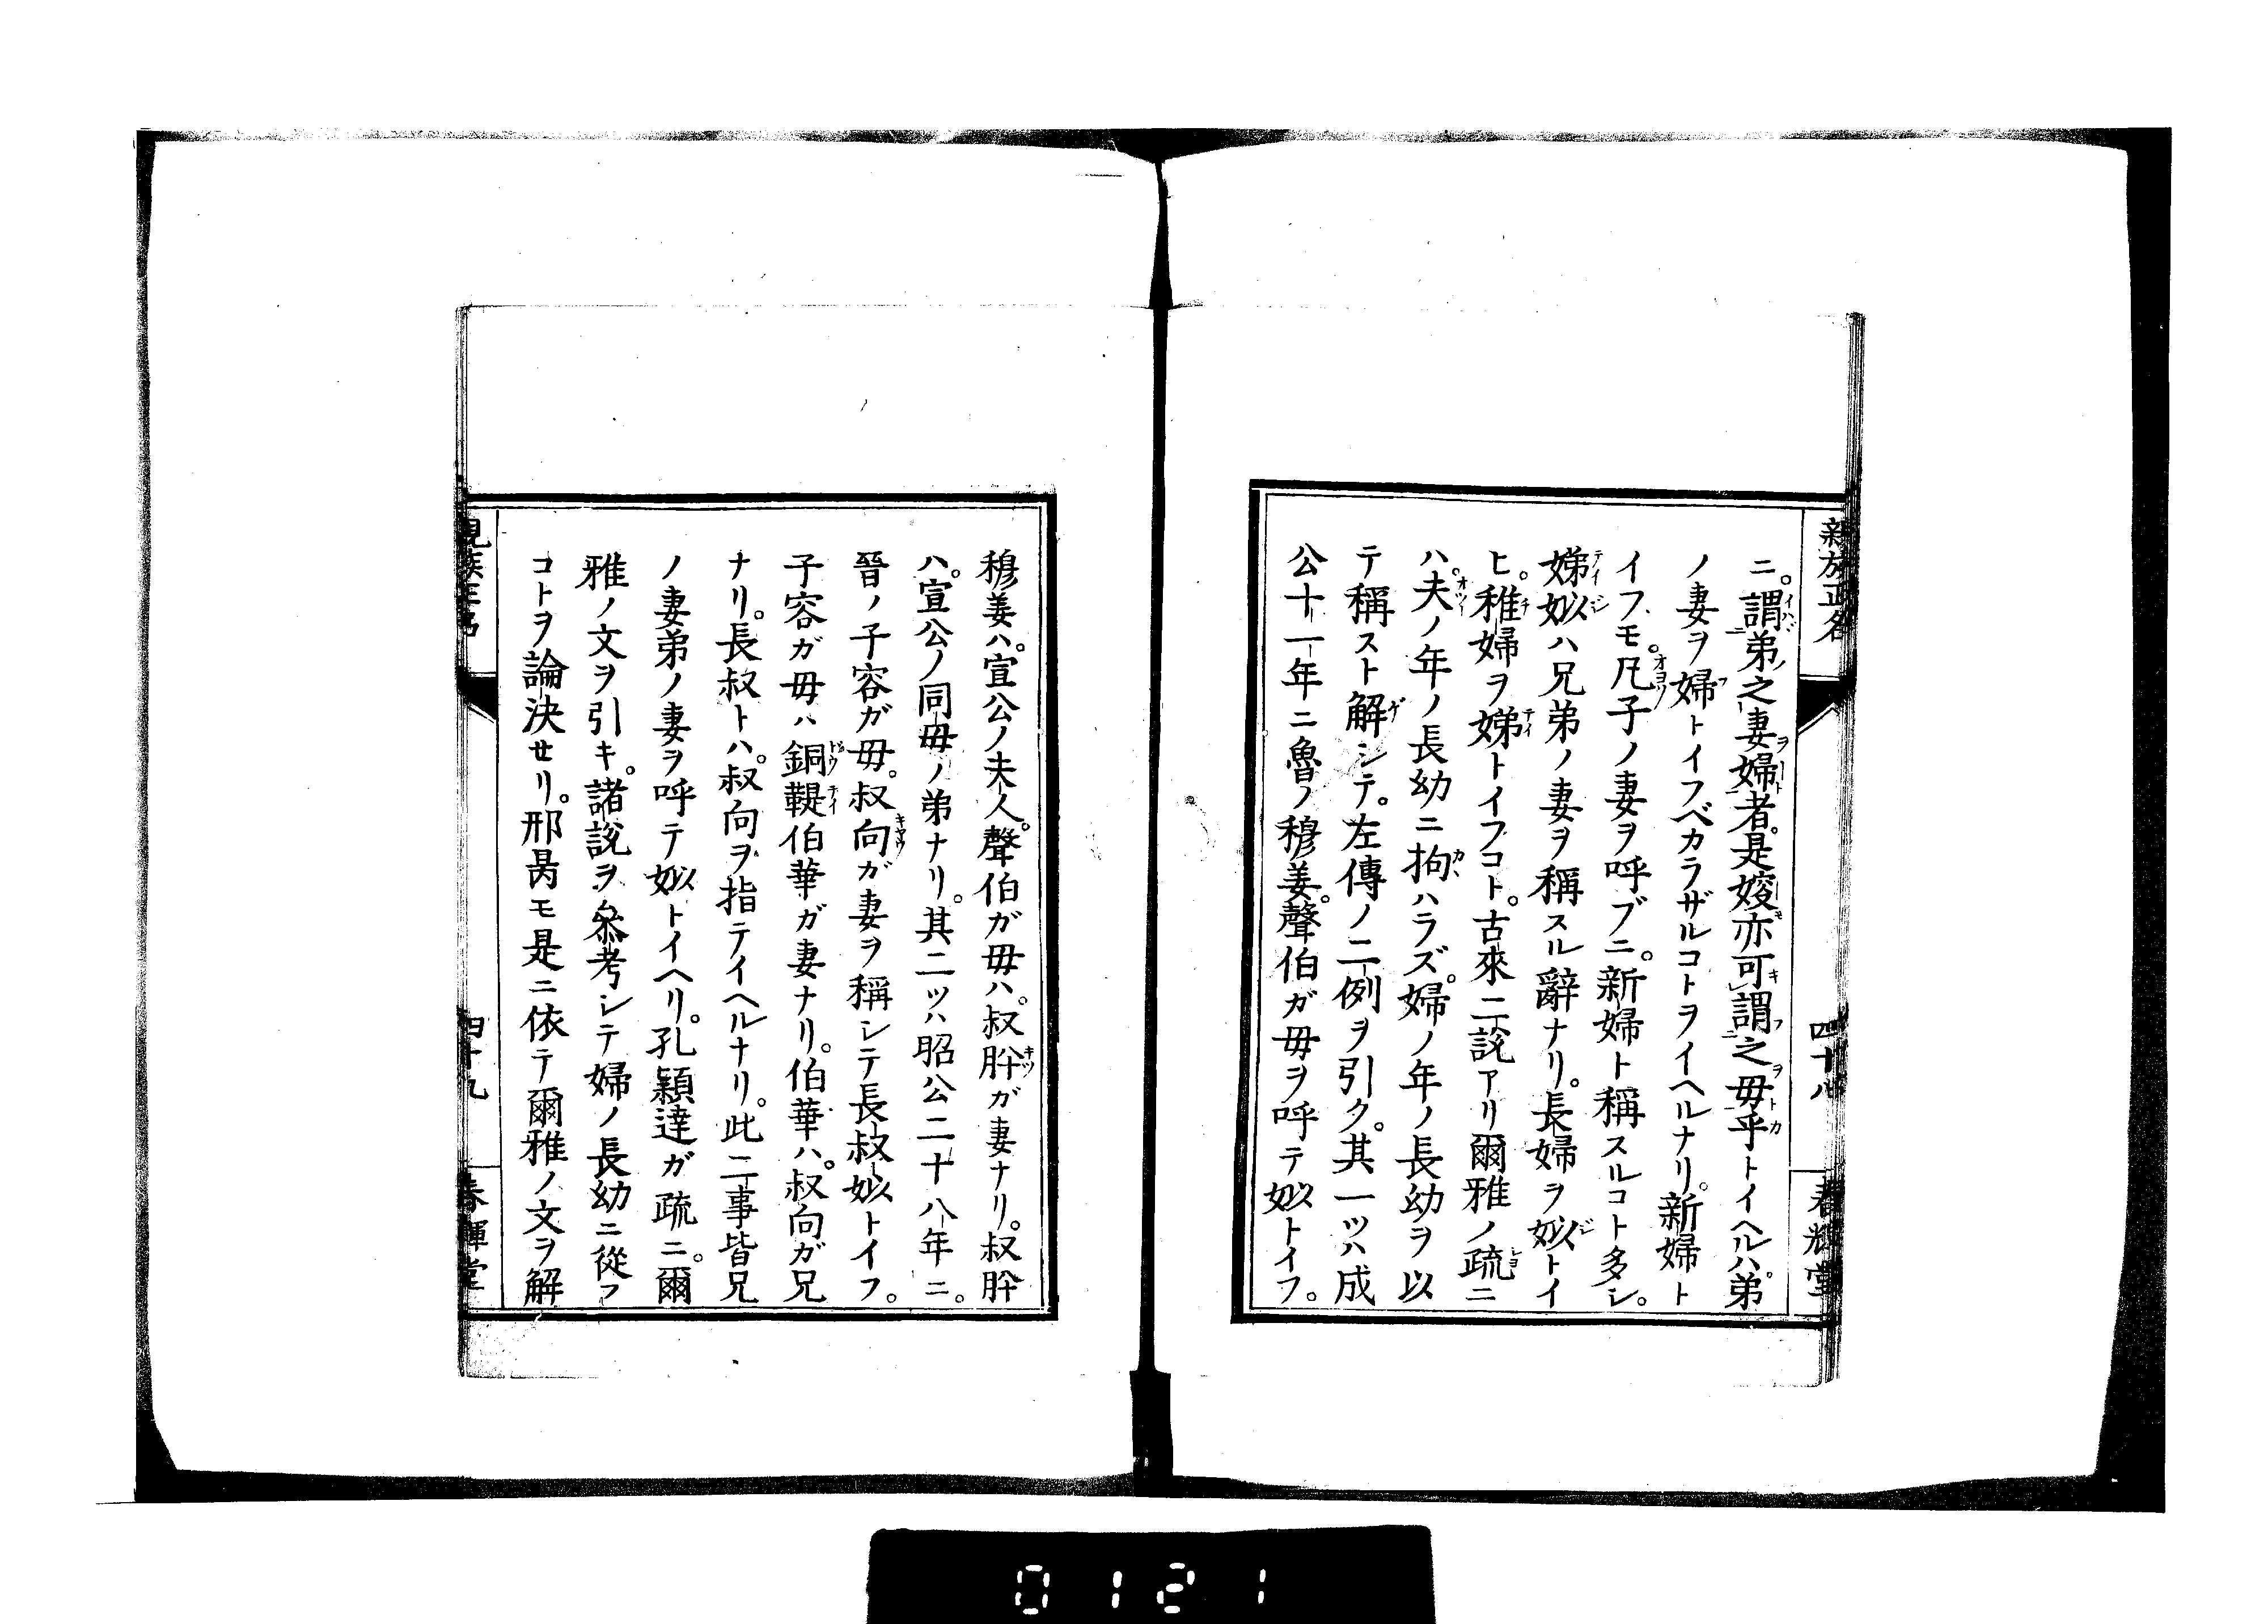 親族正名
四十八
春輝堂
ニ。謂弟之妻婦者。是嫂亦可謂之母乎トイヘルハ。弟
ノ妻ヲ婦トイフベカラザルコトヲイヘルナリ。新婦ト
イフモ。凡子ノ妻ヲ呼ブニ。新婦ト稱スルコト多シ。
娣姒ハ兄弟ノ妻ヲ稱スル辭ナリ。長婦ヲ姒トイ
ヒ。稚婦ヲ娣トイフコト。古來二說アリ爾雅ノ疏ニ
ハ。夫ノ年ノ長幼ニ拘ハラズ。婦ノ年ノ長幼ヲ以
テ稱スト解シテ。左傳ノ二例ヲ引ク。其一ツハ成
公十一年ニ魯ノ穆姜。聲伯ガ母ヲ呼テ姒トイフ。
穆姜ハ。宣公ノ夫人。聲伯ガ母ハ。叔肸ガ妻ナリ。叔肸
ハ。宣公ノ同母ノ弟ナリ。其二ツハ昭公二十八年ニ。
晉ノ子容ガ母。叔向ガ妻ヲ稱シテ長叔姒トイフ。
子容ガ母ハ銅鞮伯華ガ妻ナリ。伯華ハ。叔向ガ兄
ナリ。長叔トハ。叔向ヲ指テイヘルナリ。此二事皆兄
ノ妻弟ノ妻ヲ呼テ姒トイヘリ。孔穎達ガ疏ニ。爾
雅ノ文ヲ引キ。諸說ヲ參考シテ婦ノ長幼ニ從フ
コトヲ論決セリ。邢昺モ是ニ依テ爾雅ノ文ヲ解
親族正名
四十九
春輝堂
0121